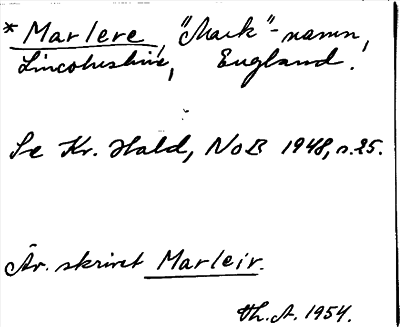 * Marlere, "Mark"-namn,
Lincolnshire, England.
Se Kr. Hald, NoB 1948, s. 25.
Äv. skrivet Marleir.
Th. A. 1954.